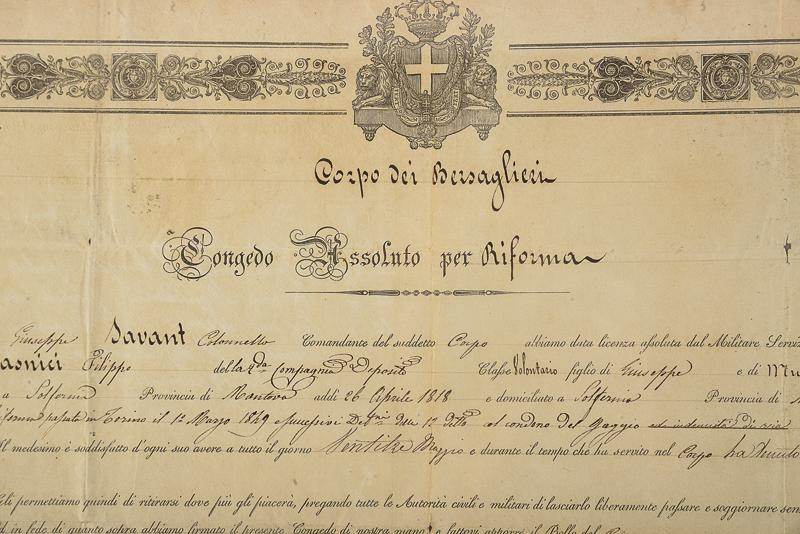 Corpo dei Bersaglieri
Congedo Assoluto per Riforma
Giuseppe Savant Colonnello Comandante del suddetto Corpo abbiamo data licenza assoluta dal Militare Serviz
asnici Filippo della 2da Compagnia Deposito Classe Volontario figlio di Giuseppe e di Mu
a Solferino Provincia di Mantova addì 26 Aprile 1818 e domiciliato a Solferino Provincia di
in Torino il 1o Marzo 1849 e successivi
Il medesimo è soddisfatto d'ogni suo avere a tutto il giorno Ventitre Maggio e durante il tempo che ha servito nel Corpo ha tenuto
Gli permettiamo quindi di ritirarsi dove più gli piacerà, pregando tutte le Autorità civili e militari di lasciarlo liberamente passare e soggiornare sen
d in fede di quanto sopra abbiamo firmato il presente Congedo di nostra mano, e fattovi apporre il Bollo del